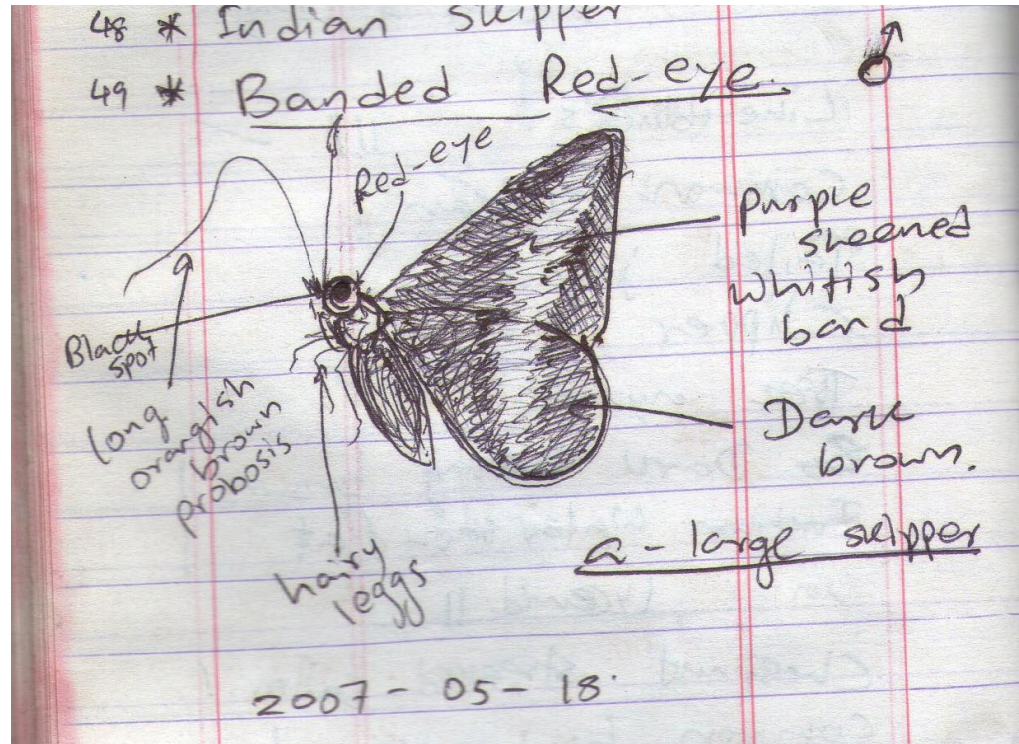 48 * Indian Skipper
49 * Banded Red-eye. ♂
Red-eye
Purple
sheened
whitish
band
Black
spot
long
orangish
brown
probosis
Dark
brown.
hairy
leggs
a - large skipper
2007 - 05 - 18.